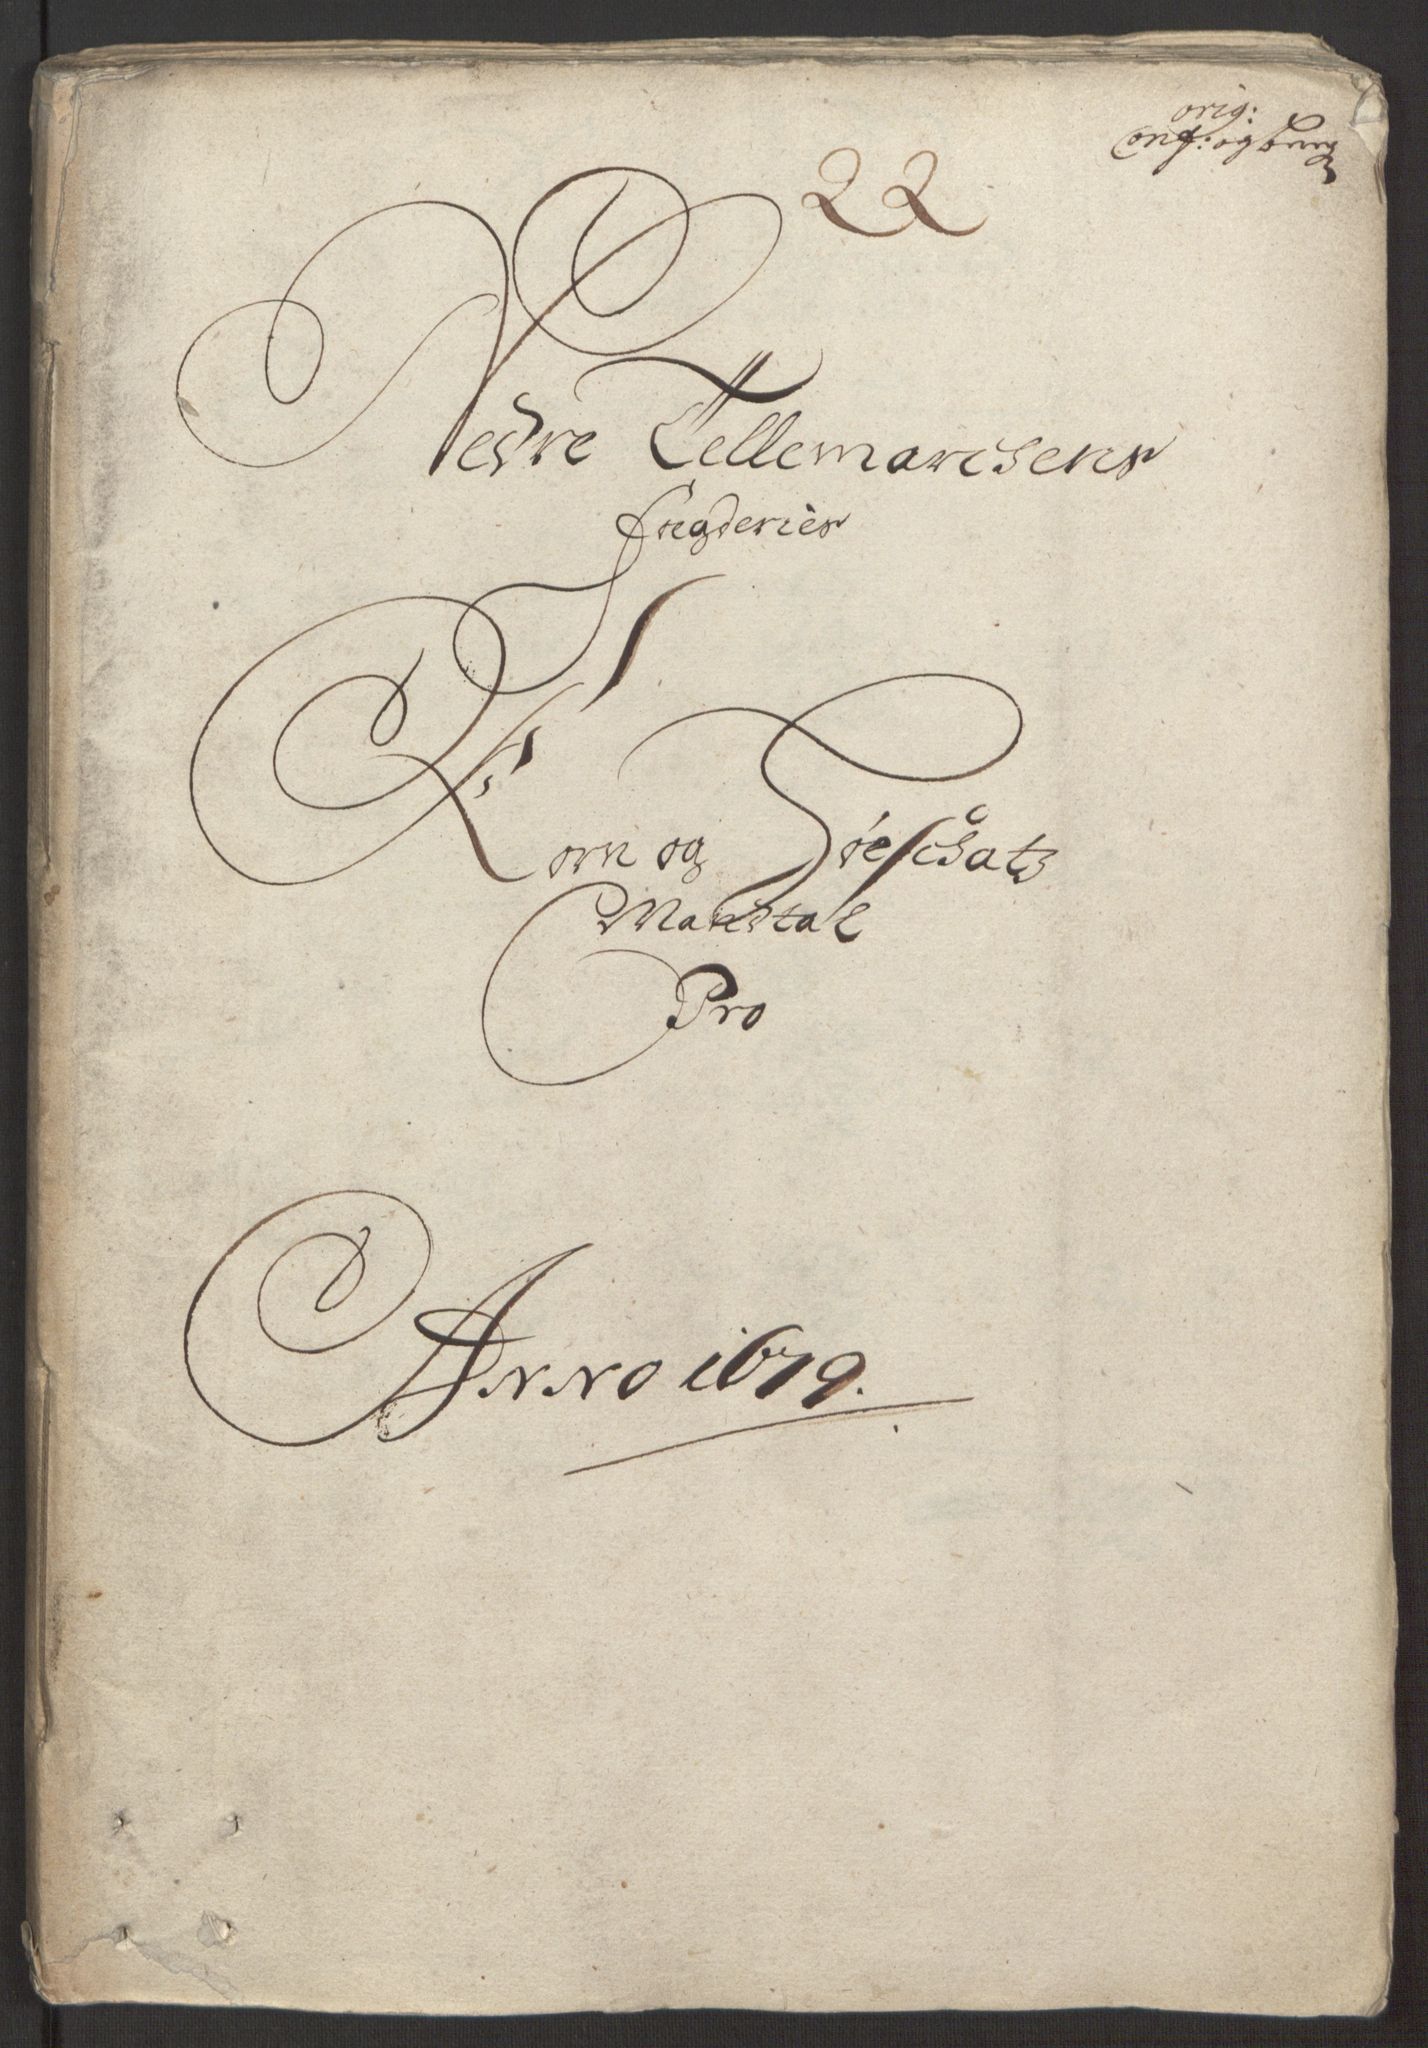 orig:
Conf: og bereg
22
Nedre Tellemarchens
fougderies
Korn og Qvegschats
Mandtal
Pro
Anno 1679.